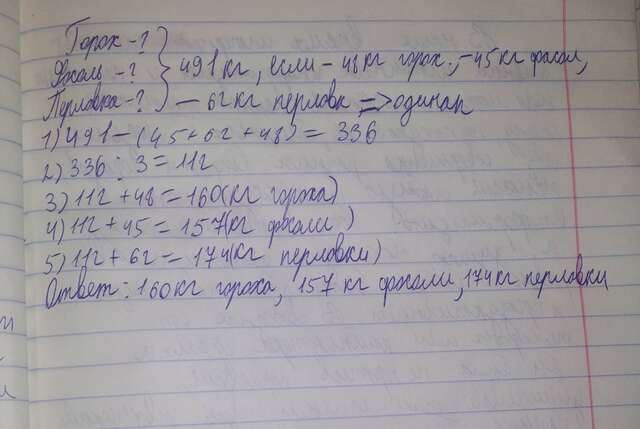 Горох - ?
Фасоль - ? } 491 кг, если - 48 кг горох., - 45 кг фасол,
Перловка - ? — 62 кг перловк => одинак
1) 491 - (45 + 62 + 48) = 336
2) 336 : 3 = 112
3) 112 + 48 = 160 (кг гороха)
4) 112 + 45 = 157 (кг фасоли)
5) 112 + 62 = 174 (кг перловки)
Ответ: 160 кг гороха, 157 кг фасоли, 174 кг перловки